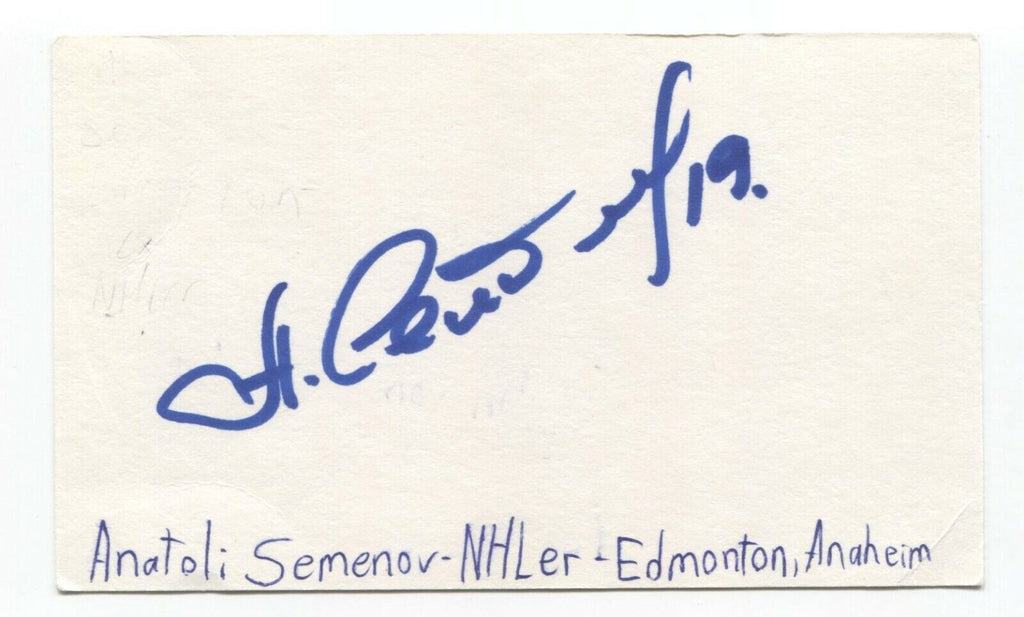 А. Семенов 19.
Anatoli Semenov-NHLer-Edmonton, Anaheim